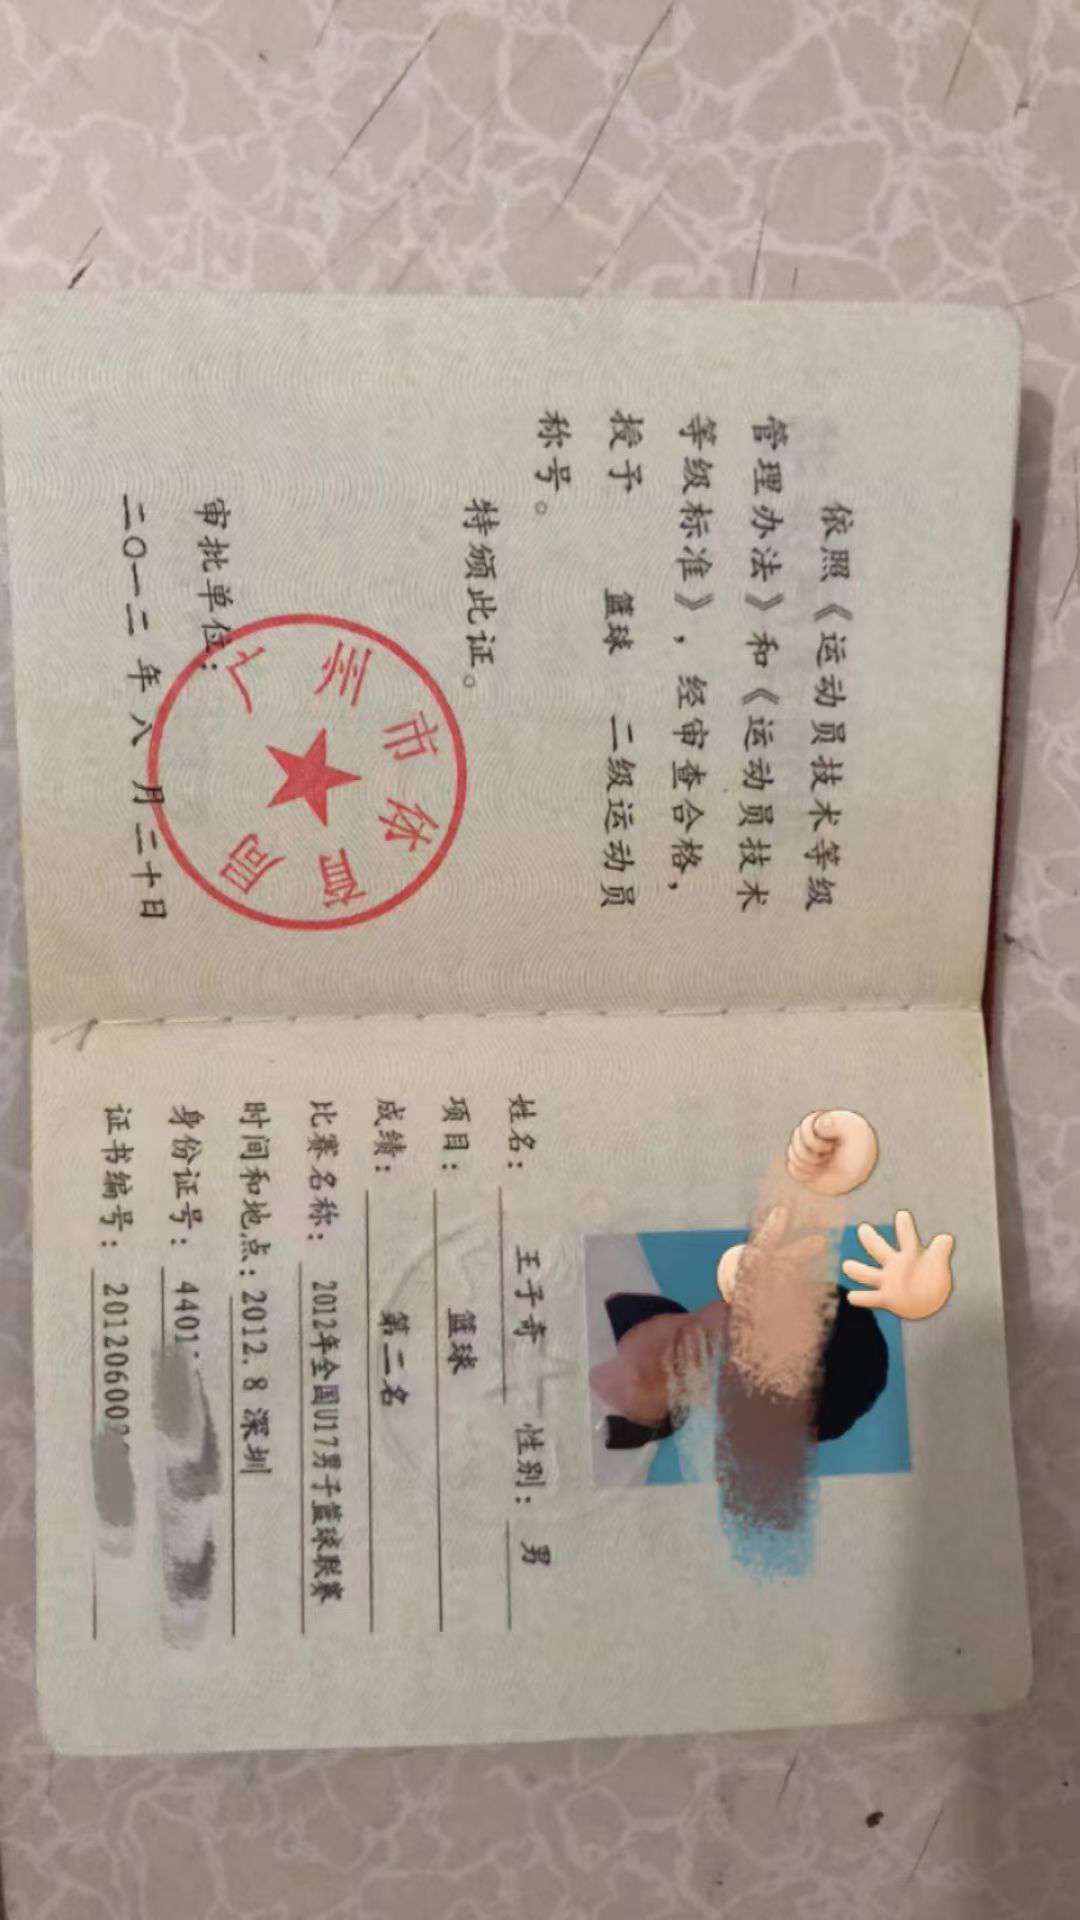 依照《运动员技术等级
管理办法》和《运动员技术
等级标准》，经审查合格，
授予 篮球 二级运动员
称号。
特颁此证。
审批单位：
广州市体育局
二〇一二 年 八 月 二十日
姓名： 王子奇 性别： 男
项目： 篮球
成绩： 第二名
比赛名称： 2012年全国U17男子篮球联赛
时间和地点：2012.8 深圳
身份证号： 4401
证书编号： 201206002